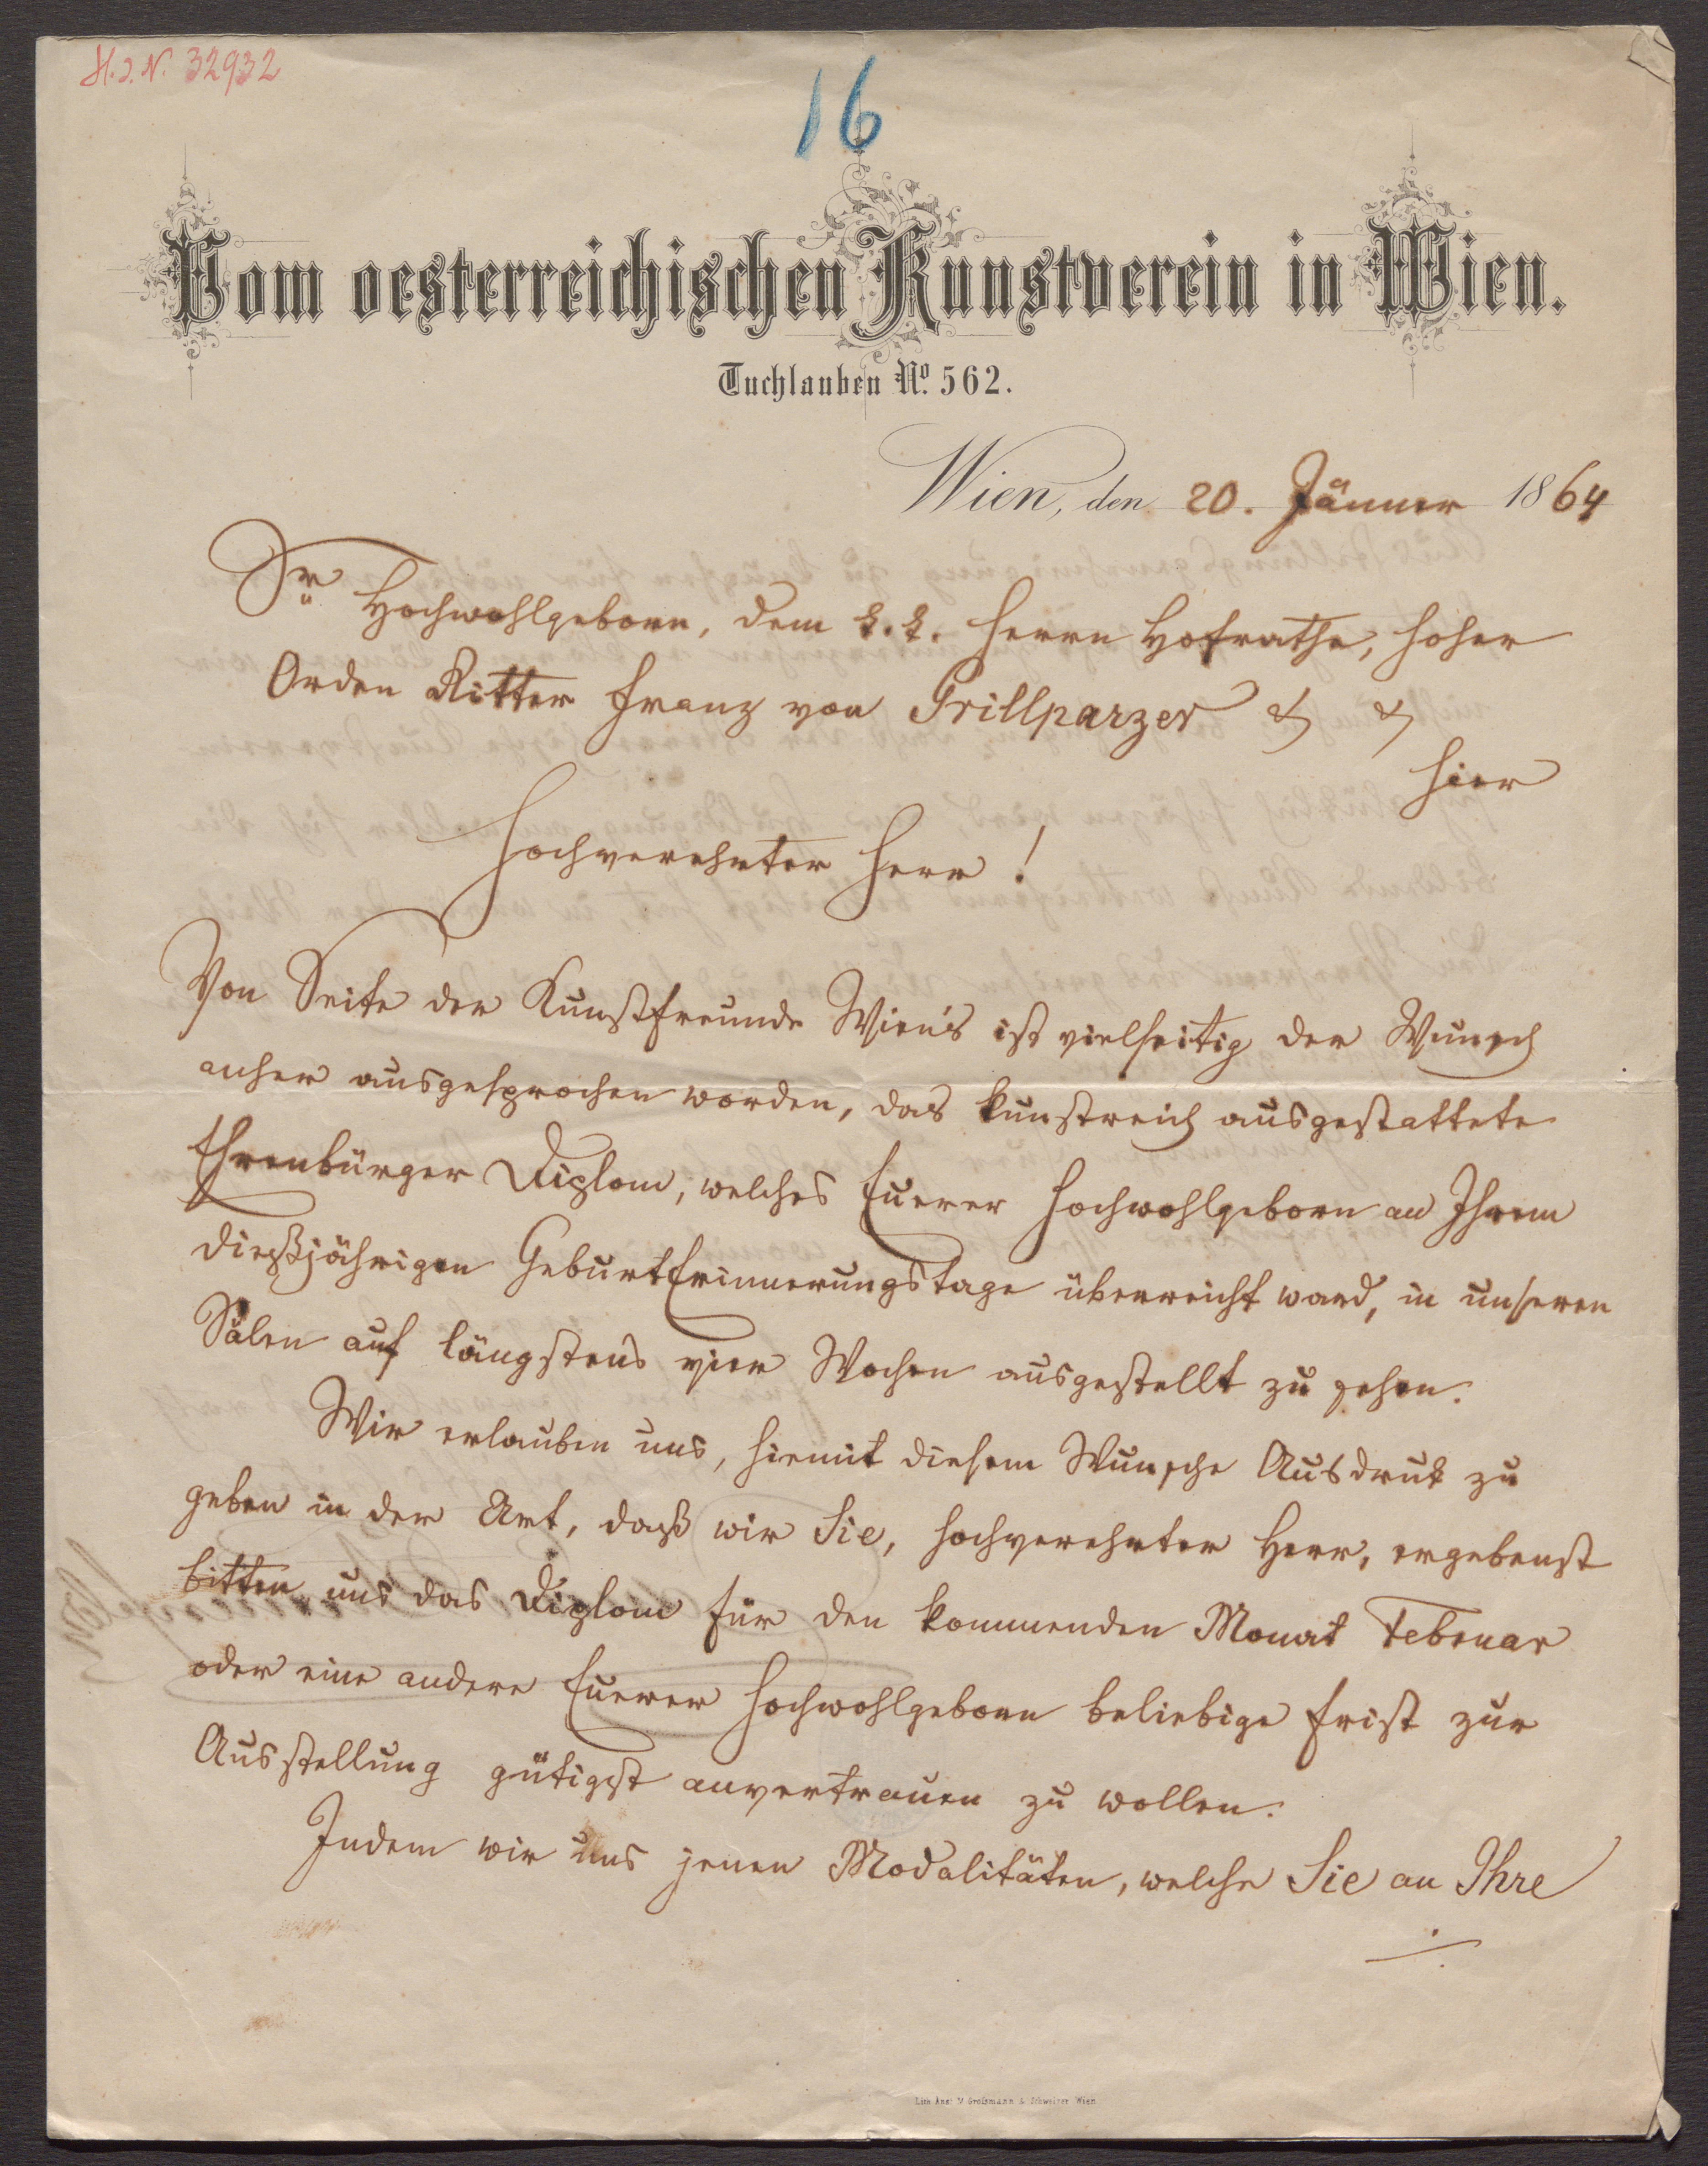 H.I.N. 32932
16
Vom oesterreichischen Kunstverein in Wien.
Tuchlauben No. 562.
Wien, den 20. Jänner 1864
Sr Hochwohlgeborn, dem k. k. Herrn Hofrathe, hoher
Orden Ritter Franz von Grillparzer & &
hier
Hochverehrter Herr!
Von Seite der Kunstfreunde Wien's ist vielseitig der Wunsch
anher ausgesprochen worden, das kunstreich ausgestattete
Ehrenbürger Diplom, welches Euerer Hochwohlgeborn an Ihrem
dießjährigen GeburtErinnerungstage überreicht ward, in unseren
Sälen auf längstens vier Wochen ausgestellt zu sehen.
Wir erlauben uns, hiemit diesem Wunsche Ausdruk zu
geben in der Art, daß wir Sie, hochverehrter Herr, ergebenst
bitten, uns das Diplom für den kommenden Monat Februar
oder eine andere Euerer Hochwohlgeborn beliebige Frist zur
Ausstellung gütigst anvertrauen zu wollen.
Indem wir uns jenen Modalitäten, welche Sie an Ihre
Lith. Anst. v. Grossmann & Schweizer Wien